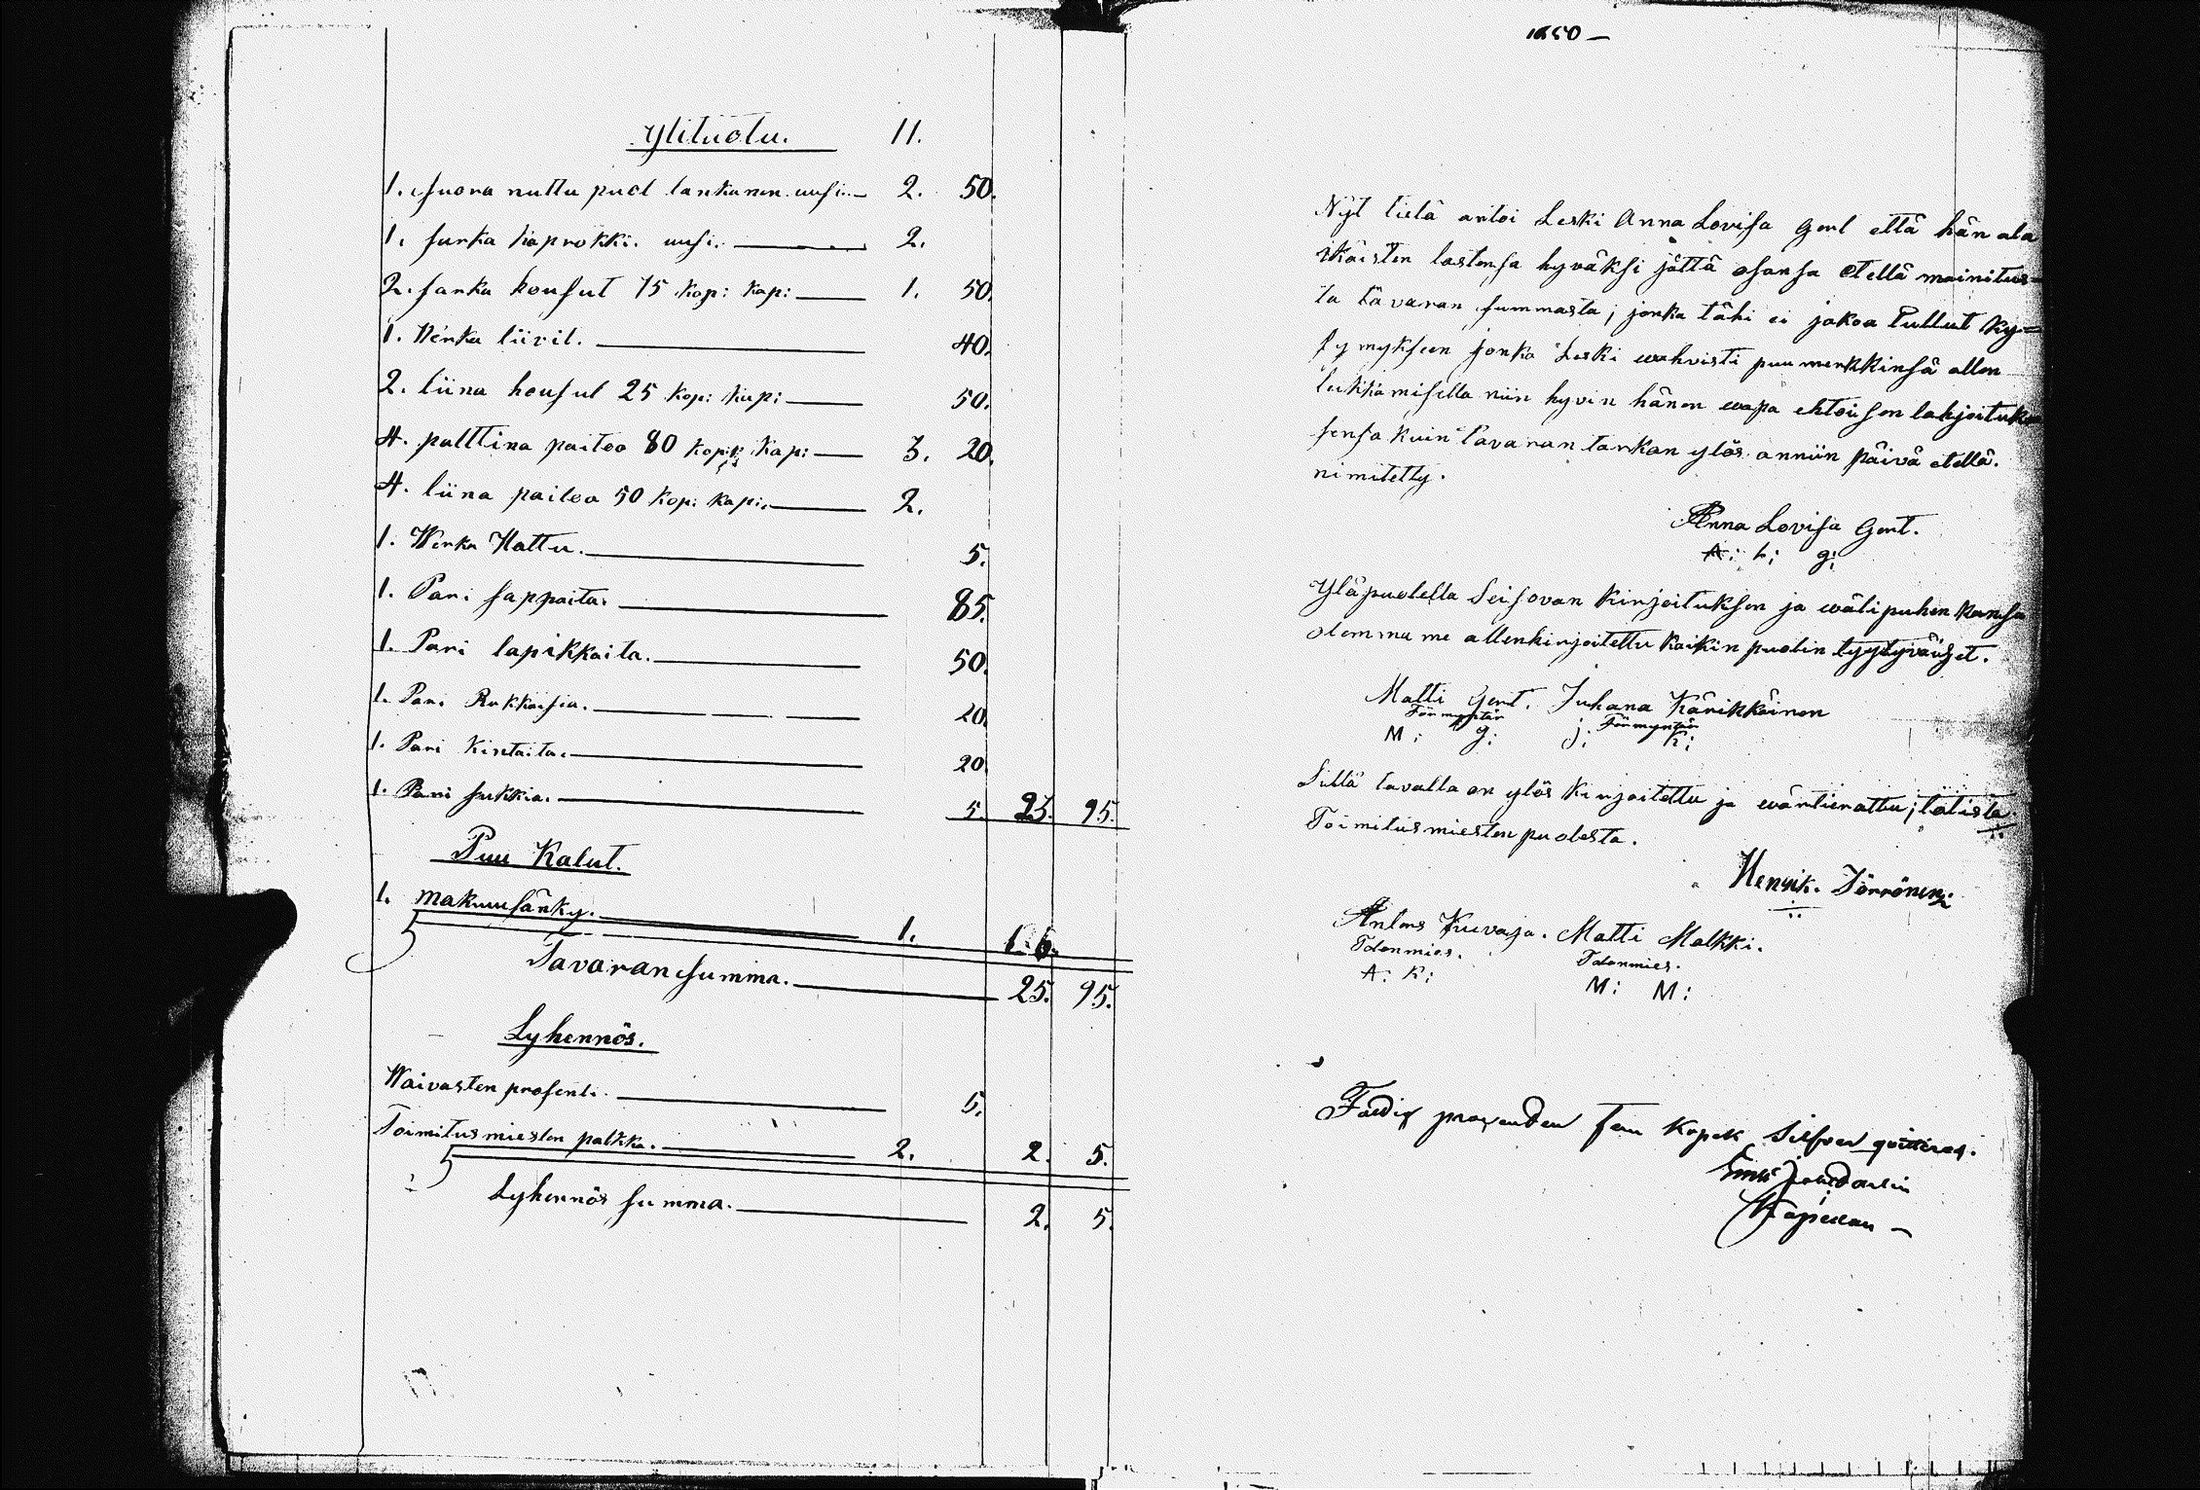 Ylituotu. 11.
1. suora nuttu puol lankanen uusi. 2. 50.
1. sarka kaprokki. uusi. 2.
2. sarka housut 75 kop: kap: 1. 50.
1. Werka liivit. 40.
2. liina housut 25 kop: kap: 50.
4. palttina paitoa 80 kop: kap: 3. 20.
4. liina paitoa 50 kop: kap: 2.
1. Werka Hattu. 5.
1. Pari sappaita. 85.
1. Pari lapikkaita. 50.
1. Pari Rukkaisia. 20.
1. Pari Kintaita. 20.
1. Pari sukkia. 5. 25. 95.
Puu Kalut.
1. makuusänky. 1.
Tavaran summa. 25. 95.
Lyhennös.
Waivasten prosenti. 5.
Toimitusmiesten palkka. 2. 2. 5.
Lyhennös summa. 2. 5.
1850 —
Nyt tielä antoi Leski Anna Lovisa Gert että hän ala
ikäisten lastensa hyväksi jättä osansa etellä mainitus=
ta tavaran summasta; jonka tähi ei jakoa tullut ky=
symykseen jonka Leski wahvisti puumerkkinsä allen
liikkämisellä niin hyvin hänen wapa ehtoisen lahjoituk
sensa kuin tavaran tarkan ylös anniin päivä etellä.
nimitetty.
Anna Lovisa Gert.
A: L: g:
Yläpuolella Seisovan kirjoituksen ja wälipuhen kansa
olemma me allenkirjoitettu kaikin puolin tyytyväiset.
Matti Gert. Juhana Kärikkäinen
Förmyntär Förmyntär
M: g: j: K:
Sillä tavalla on ylös kirjoitettu ja wärtierattu; totista
Toimitusmiesten puolesta.
Henrik. Törrönen:
Antons Kuvaja. Matti Malkki.
Todenmies. Todenmies.
A: K: M: M:
Fattig procenten fem Kopek Silfver qvitteras.